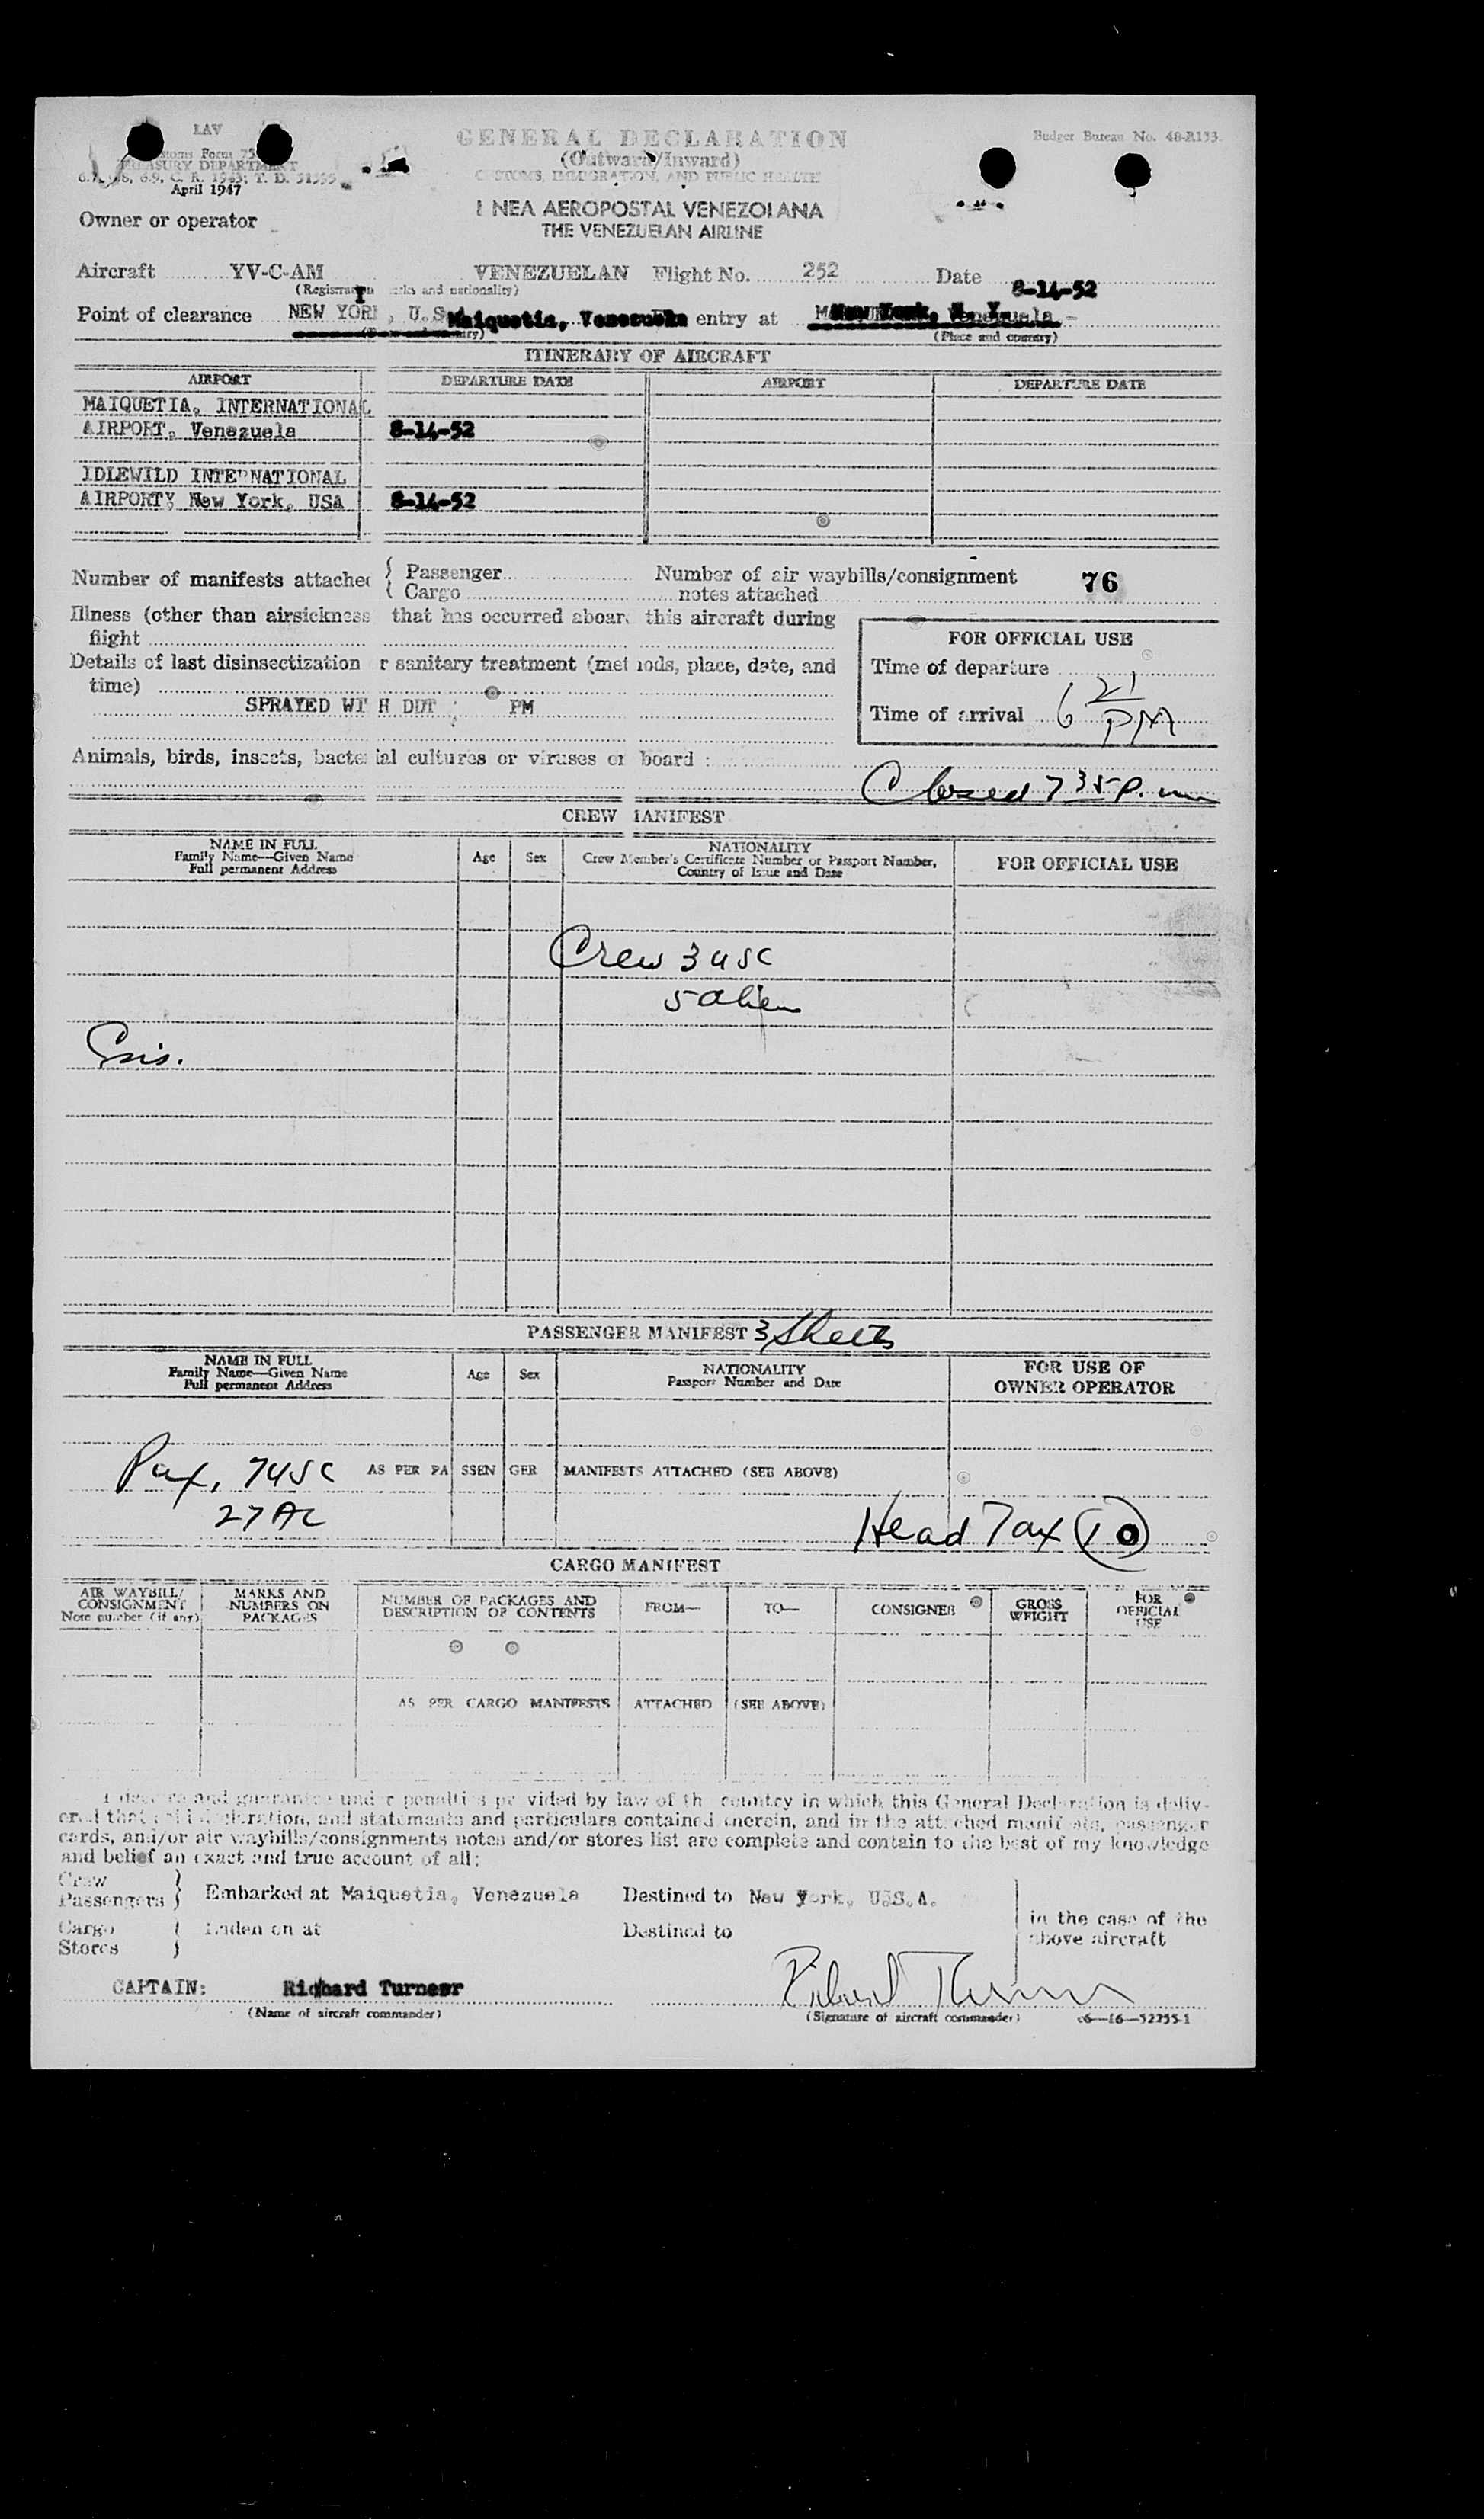 LAV
GENERAL DECLARATION
Budget Bureau No. 48-R133.
Customs Form 75
(Outward/Inward)
TREASURY DEPARTMENT
CUSTOMS, IMMIGRATION, AND PUBLIC HEALTH
April 1947
Owner or operator
LINEA AEROPOSTAL VENEZOLANA
THE VENEZUELAN AIRLINE
Aircraft YV-C-AM VENEZUELAN Flight No. 252 Date 8-14-52
(Registration marks and nationality)
Point of clearance NEW YORK, U.S. Maiquetia, Venezuela entry at New York, N. Y.
(Place and country)
ITINERARY OF AIRCRAFT
AIRPORT DEPARTURE DATE AIRPORT DEPARTURE DATE
MAIQUETIA, INTERNATIONAL
AIRPORT, Venezuela 8-14-52
IDLEWILD INTERNATIONAL
AIRPORTY New York, USA 8-14-52
Number of manifests attached { Passenger Number of air waybills/consignment 76
{ Cargo notes attached
Illness (other than airsickness that has occurred aboard this aircraft during
flight
FOR OFFICIAL USE
Details of last disinsectization or sanitary treatment (methods, place, date, and
Time of departure
time)
SPRAYED WITH DDT : PM
Time of arrival 6 21 PM
Animals, birds, insects, bacterial cultures or viruses on board :
Closed 7 35 P. m
CREW MANIFEST
NAME IN FULL
Family Name—Given Name
Full permanent Address
Age Sex
NATIONALITY
Crew Member's Certificate Number or Passport Number,
Country of Issue and Date
FOR OFFICIAL USE
Crew 3 USC
5 alien
PASSENGER MANIFEST 3 Sheets
NAME IN FULL
Family Name—Given Name
Full permanent Address
Age Sex
NATIONALITY
Passport Number and Date
FOR USE OF
OWNER OPERATOR
Pax, 74 SC AS PER PASSENGER MANIFESTS ATTACHED (SEE ABOVE)
27 AL
Head Tax 10
CARGO MANIFEST
AIR WAYBILL/
CONSIGNMENT
Note number (if any)
MARKS AND
NUMBERS ON
PACKAGES
NUMBER OF PACKAGES AND
DESCRIPTION OF CONTENTS
FROM—
TO—
CONSIGNEE
GROSS
WEIGHT
FOR
OFFICIAL
USE
AS PER CARGO MANIFESTS ATTACHED (SEE ABOVE)
I declare and guarantee under penalties provided by law of the country in which this General Declaration is deliv-
ered that this declaration, and statements and particulars contained therein, and in the attached manifests, passenger
cards, and/or air waybills/consignments notes and/or stores list are complete and contain to the best of my knowledge
and belief an exact and true account of all:
Crew
Passengers } Embarked at Maiquetia, Venezuela Destined to New York, U.S.A.
Cargo
Stores } Laden on at Destined to
in the case of the
above aircraft
CAPTAIN: Richard Turneer Richard Turner
(Name of aircraft commander) (Signature of aircraft commander) c6—16—52255-1